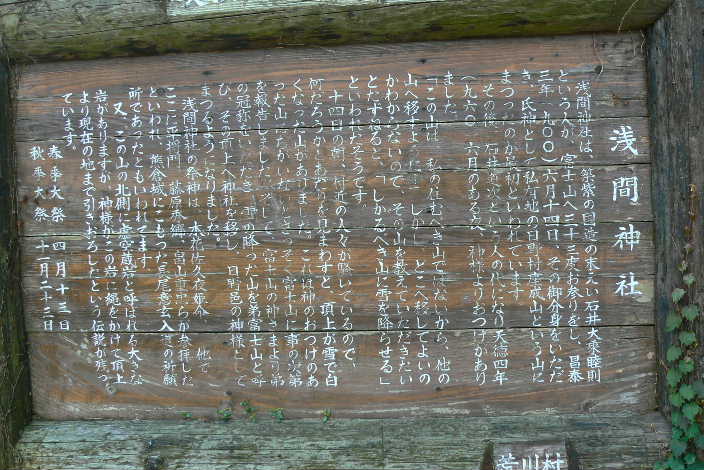 浅間神社
浅間神社は、筑紫の国造の末えい石井大乗睦則
という人が、富士山へ三十三度お参りをし、昌泰
三年(九〇〇)六月十四日、その御分身をいただ
き、氏神として私有地の日野村産成山という山に
まつったのが最初といわれています。
その後、石井 という人の代になり天徳四年
(九六〇)六月のある夜、神様よりおつげがあり
ました。
「この山は、私の住むべき山ではないから、他の
山へ移すように」「しかし、どこへ移してよいの
かわからないので、その山を教えていただきたい
とたずねると、「しかるべき山に雪を降らせる」
といわれたそうです。
十四日の朝、付近の人々が騒いでいるので、
何だろうかとあたりを見まわすと、頂上が雪で白
くなった山がありました。これは神のおつげのあ
った山にちがいないと、さっそく富士山に事の次第
を報告しました。そして、富士山の神さまより第
の冠称をいただき、雪の降った山を第富士山と呼
び、その頂上へ神社を移し、日野邑の神様として
まつるようになりました。
浅間神社の祭神は、木花佐久夜姫命 他で
ここに平将門、藤原秀郷、畠山重忠らが参拝した
といわれ、熊倉城にこもった長尾意玄入道の祈願
所であったともいわれてます。
又、この山の北側に虚空蔵岩と呼ばれる大きな
岩がありますが、神様がこの岩に縄をかけて頂上
より現在の地まで引きおろしたという伝説が残っ
ています。
春季大祭 四月十三日
秋季大祭 十一月二十三日
荒川村